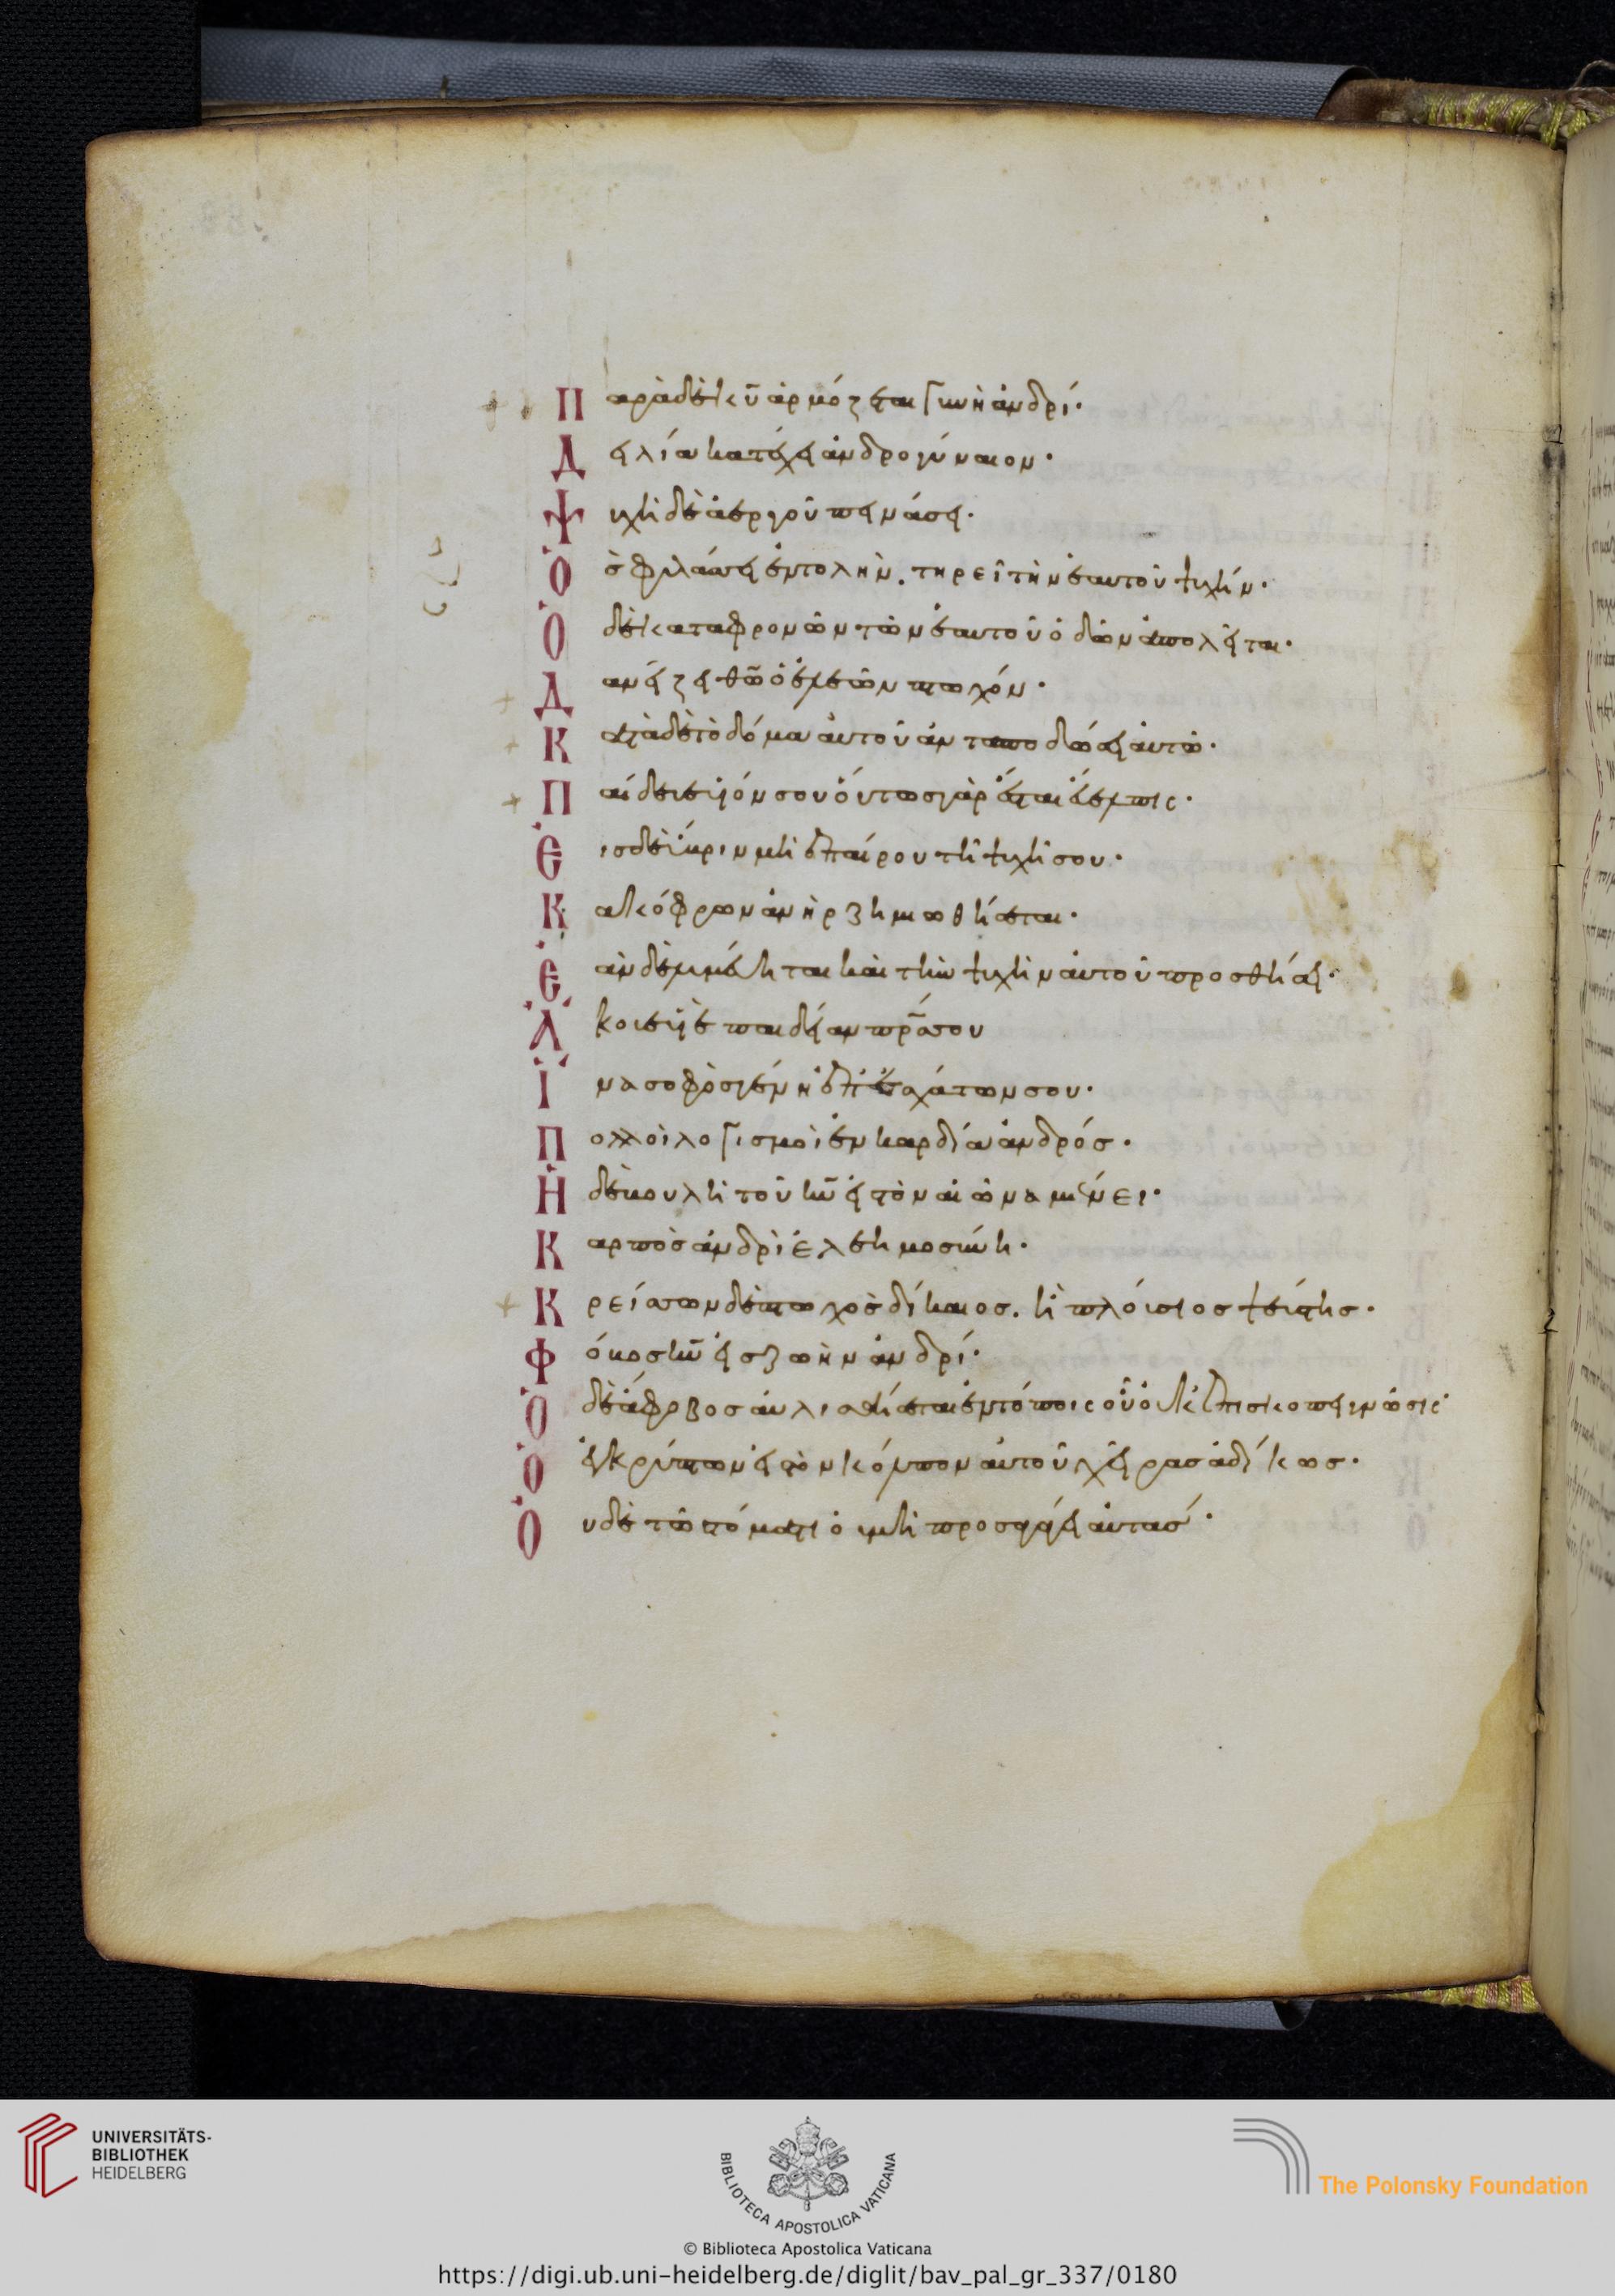 Παρὰ δὲ κῦ ἁρμόζεται γυνὴ ἀνδρί·
Δειλία κατέχει ἀνδρογύναιον·
Ψυχὴ δὲ ἀεργοῦ πεινάσει·
Ὁ ὃ φυλάσσει ἐντολὴν. τηρεῖ τὴν ἑαυτοῦ ψυχήν·
Ὁ δὲ καταφρονῶν τῶν ἑαυτοῦ ὁδῶν ἀπολεῖται·
Δανείζει θῶ ὁ ἐλεῶν πτωχόν·
Κατὰ δὲ τὸ δόμα αὐτοῦ ἀνταποδώσει αὐτῶ·
Παίδευε υἱόν σου οὕτως γὰρ ἔσται εὔελπις·
Εἰς δὲ ὕβριν μὴ ἐπαίρου τῆ ψυχῆ σου·
Κακόφρων ἀνὴρ ζημιωθήσεται·
Ἐὰν δὲ λοιμεύηται καὶ τὴν ψυχὴν αὐτοῦ προσθήσει·
Ἄκουε υἱὲ παιδείαν πρσ σου
Ἵνα σοφὸς γένη ἐπ' ἐσχάτων σου·
Πολλοὶ λογισμοὶ ἐν καρδία ἀνδρός·
Ἡ δὲ βουλὴ τοῦ κῦ εἰς τὸν αἰῶνα μένει·
Καρπὸς ἀνδρὶ ἐλεημοσύνη·
Κρείσσων δὲ πτωχὸς δίκαιος. ἢ πλούσιος ψεύστης·
Φόβος κῦ εἰς ζωὴν ἀνδρί·
Ὁ δὲ ἄφοβος αὐλισθήσεται ἐν τόποις οὗ οὐκ ἐπισκοπεῖ γνῶσις·
Ὁ ἐγκρύπτων εἰς τὸν κόλπον αὐτοῦ χεῖρας ἀδίκως·
Οὐδὲ τῶ στόματι οὐ μὴ προσαγάγει αὐτάς·
UNIVERSITÄTS-
BIBLIOTHEK
HEIDELBERG
BIBLIOTECA APOSTOLICA VATICANA
The Polonsky Foundation
© Biblioteca Apostolica Vaticana
https://digi.ub.uni-heidelberg.de/diglit/bav_pal_gr_337/0180